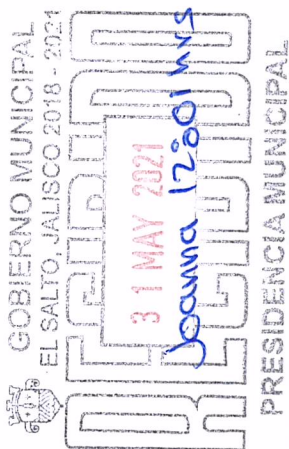 GOBIERNO MUNICIPAL
EL SALTO JALISCO 2018 - 2021
RECIBIDO
31 MAY 2021
Joanna 12:01 hrs
PRESIDENCIA MUNICIPAL